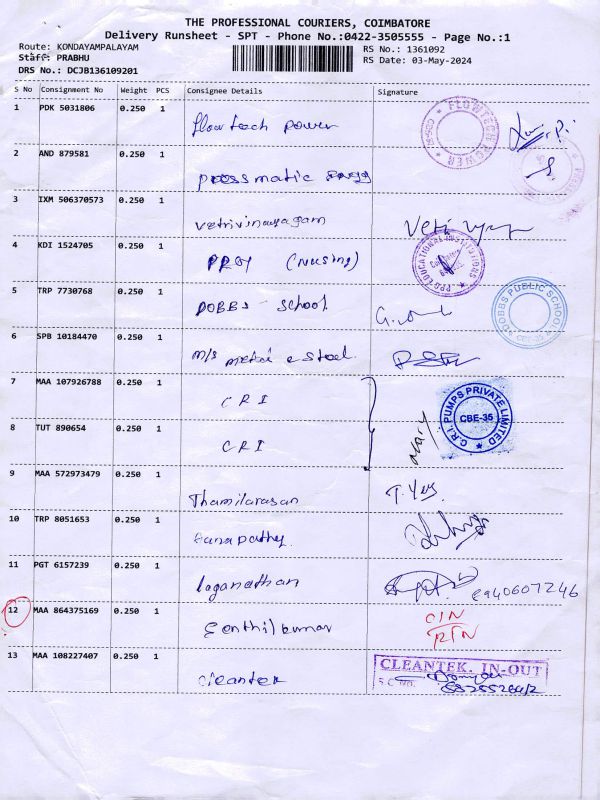 THE PROFESSIONAL COURIERS, COIMBATORE
Delivery Runsheet - SPT - Phone No.:0422-3505555 - Page No.:1
Route: KONDAYAMPALAYAM
RS No.: 1361092
Staff: PRABHU
RS Date: 03-May-2024
DRS No.: DCJB136109201
S No Consignment No Weight PCS Consignee Details Signature
1 PDK 5031806 0.250 1 flowtech power
FLOWTECH POWER
2 AND 879581 0.250 1 pressmatic engg
3 IXM 506370573 0.250 1 vetrivinayagam
4 KDI 1524705 0.250 1 PPGI (Nursing)
PPG EDUCATIONAL INSTITUTIONS
5 TRP 7730768 0.250 1 DOBBS - school
DOBBS PUBLIC SCHOOL
CBE-35
6 SPB 10184470 0.250 1 m/s metal e steel
7 MAA 107926788 0.250 1 CRI
C.R.I. PUMPS PRIVATE LIMITED
CBE-35
8 TUT 890654 0.250 1 CRI
9 MAA 572973479 0.250 1 Thamilarasan
10 TRP 8051653 0.250 1 Ganapathy
11 PGT 6157239 0.250 1 Loganathan
12 MAA 864375169 0.250 1 Senthilkumar
RTN
13 MAA 108227407 0.250 1 cleantek
CLEANTEK. IN-OUT